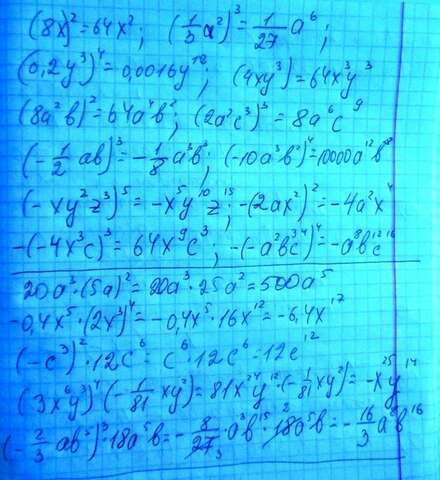 (8x)² = 64x²; (1/3 a²)³ = 1/27 a⁶;
(0,2y³)⁴ = 0,0016y¹²; (4xy³) = 64x³y³
(8a²b)² = 64a⁴b²; (2a²c³)³ = 8a⁶c⁹
(-1/2 ab)³ = -1/8 a³b³; (-10a³b²)⁴ = 10000a¹²b⁸
(-xy²z³)⁵ = -x⁵y¹⁰z¹⁵; -(2ax²)² = -4a²x⁴
-(-4x³c)³ = 64x⁹c³; -(-a²bc³⁴)⁴ = -a⁸b¹²c¹⁶
20a³·(5a)² = 20a³·25a² = 500a⁵
-0,4x⁵·(2x³)⁴ = -0,4x⁵·16x¹² = -6,4x¹⁷
(-c³)²·12c⁶ = c⁶·12c⁶ = 12c¹²
(3x⁶y³)⁴·(-1/81 xy²) = 81x²⁴y¹²·(-1/81 xy²) = -x²⁵y¹⁴
(-2/3 ab⁵)³·18a⁵b = -8/27₃·a³b¹⁵·18²a⁵b = -16/3 a⁸b¹⁶